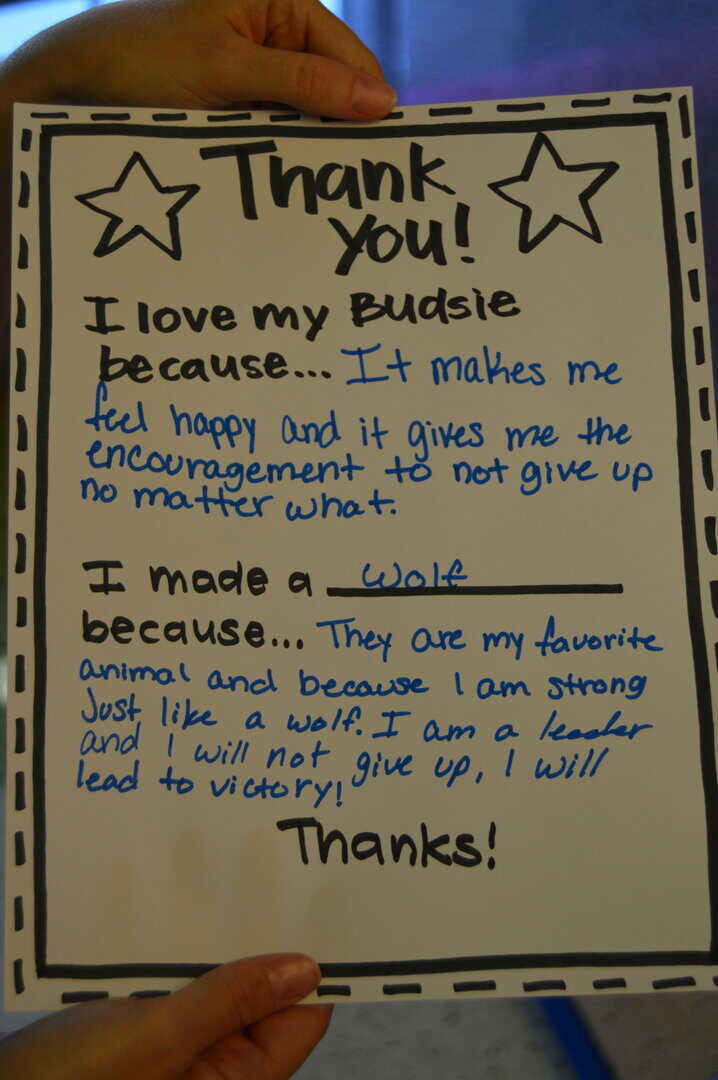 Thank
you!
I love my Budsie
because... It makes me
feel happy and it gives me the
encouragement to not give up
no matter what.
I made a wolf
because... They are my favorite
animal and because I am strong
Just like a wolf. I am a leader
and I will not give up, I will
lead to victory!
Thanks!